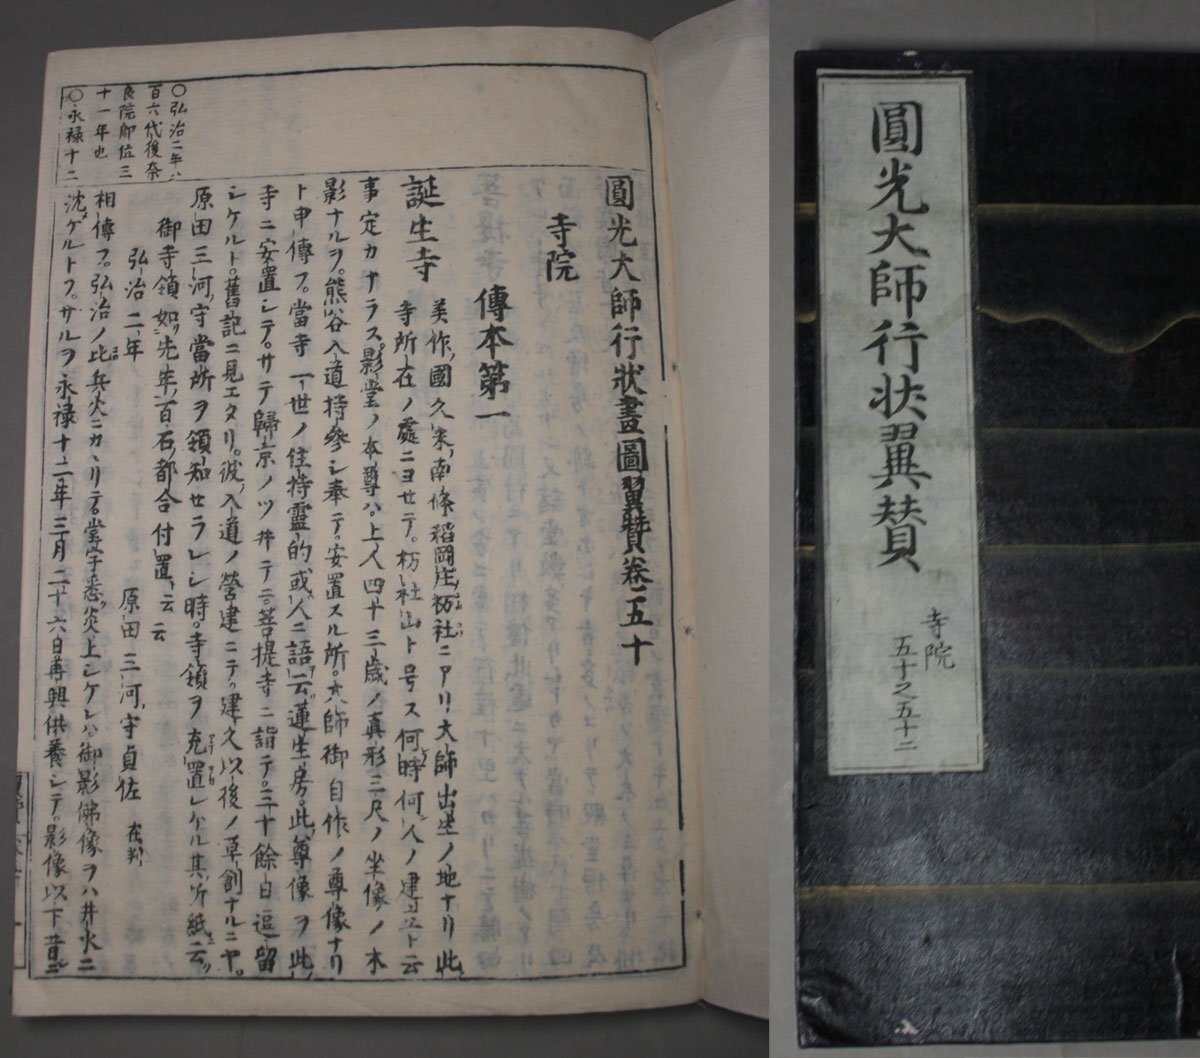 圓光大師行状翼賛
寺院
五十之五十二
圓光大師行狀畫圖翼贊卷五十
寺院
傳本第一
誕生寺
美作國久米南條稻岡庄栃社ニアリ大師出生ノ地ナリ此
寺所在ノ處ニヨセテ栃社山ト号ス何時何人ノ建立ト云
事定カナラス影堂ノ本尊ハ上人四十三歳ノ真形三尺ノ坐像ノ木
影ナルヲ熊谷入道持參シ奉テ安置スル所大師御自作ノ尊像ナリ
ト申傳フ當寺一世ノ住持靈的或人ニ語云蓮生房此尊像ヲ此
寺ニ安置シテサテ歸京ノツ井テニ菩提寺ニ詣テ三十餘日逗留
シケルト舊記ニ見エタリ彼入道ノ營建ニテ建久以後ノ草創ナルニヤ
原田三河守當所ヲ領知セラレシ時寺領ヲ充置レケル其折紙云
御寺領如先年百石都合付置云云
弘治二年 原田三河守貞佐 在判
相傳フ弘治ノ比兵火ニカヽリテ堂宇悉炎上シケレハ御影佛像ヲハ井水ニ
沈ケルトフサルヲ永禄十二年三月二十六日再興供養シテ影像以下昔ニ
〇弘治二年ハ
百六代後奈
良院即位三
十一年也
〇永禄十二